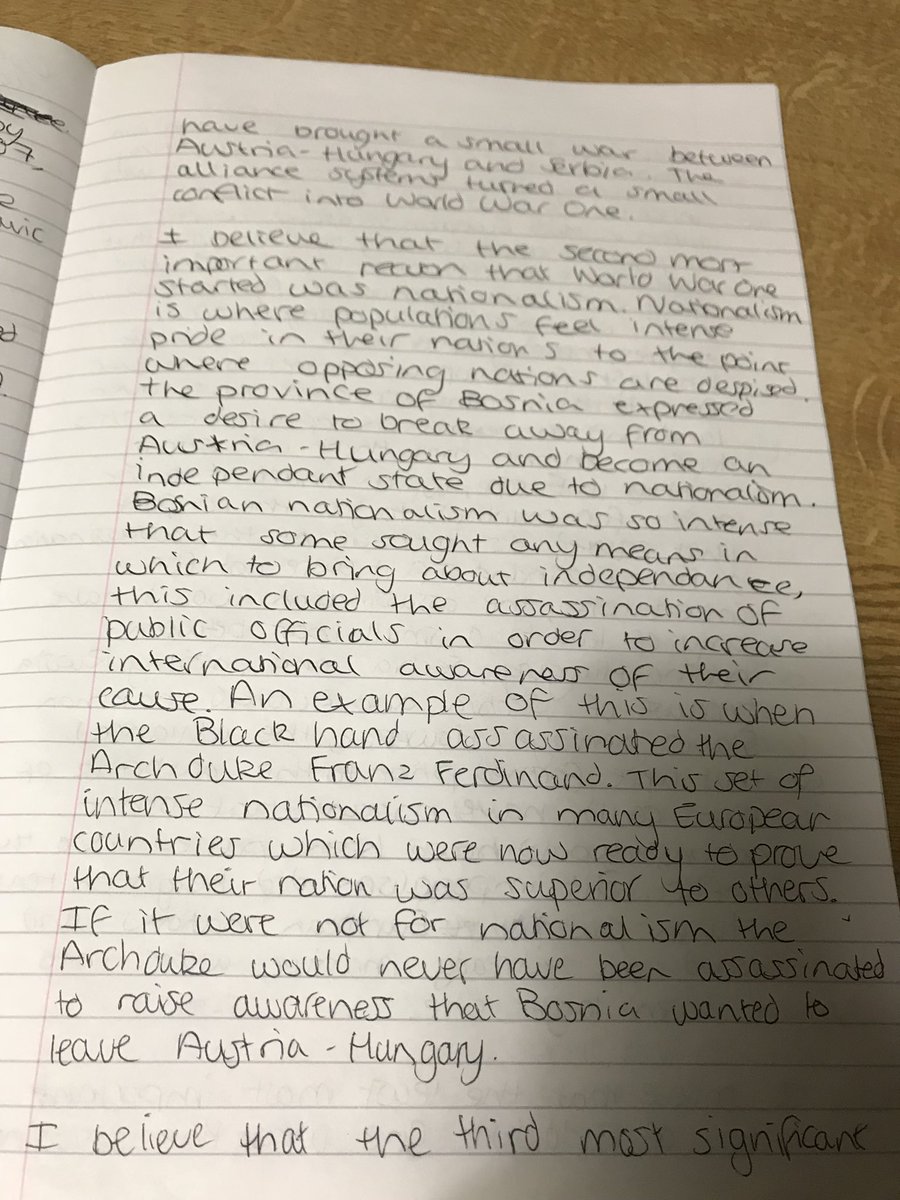 by
07.
e
wic
d
have brought a small war between
Austria-Hungary and Serbia. The
alliance systems turred a small
conflict into World War One.
I believe that the second most
important reason that World War One
started was nationalism. Nationalism
is where populations feel intense
pride in their nations to the point
where opposing nations are despised.
the province of Bosnia expressed
a desire to break away from
Austria-Hungary and become an
independant state due to nationalism.
Bosnian nationalism was so intense
that some sought any means in
which to bring about independance,
this included the assassination of
public officials in order to increase
international awareness of their
cause. An example of this is when
the Black hand assassinated the
Archduke Franz Ferdinand. This set of
intense nationalism in many European
countries which were now ready to prove
that their nation was superior to others.
If it were not for nationalism the
Archduke would never have been assassinated
to raise awareness that Bosnia wanted to
leave Austria-Hungary.
I believe that the third most significant